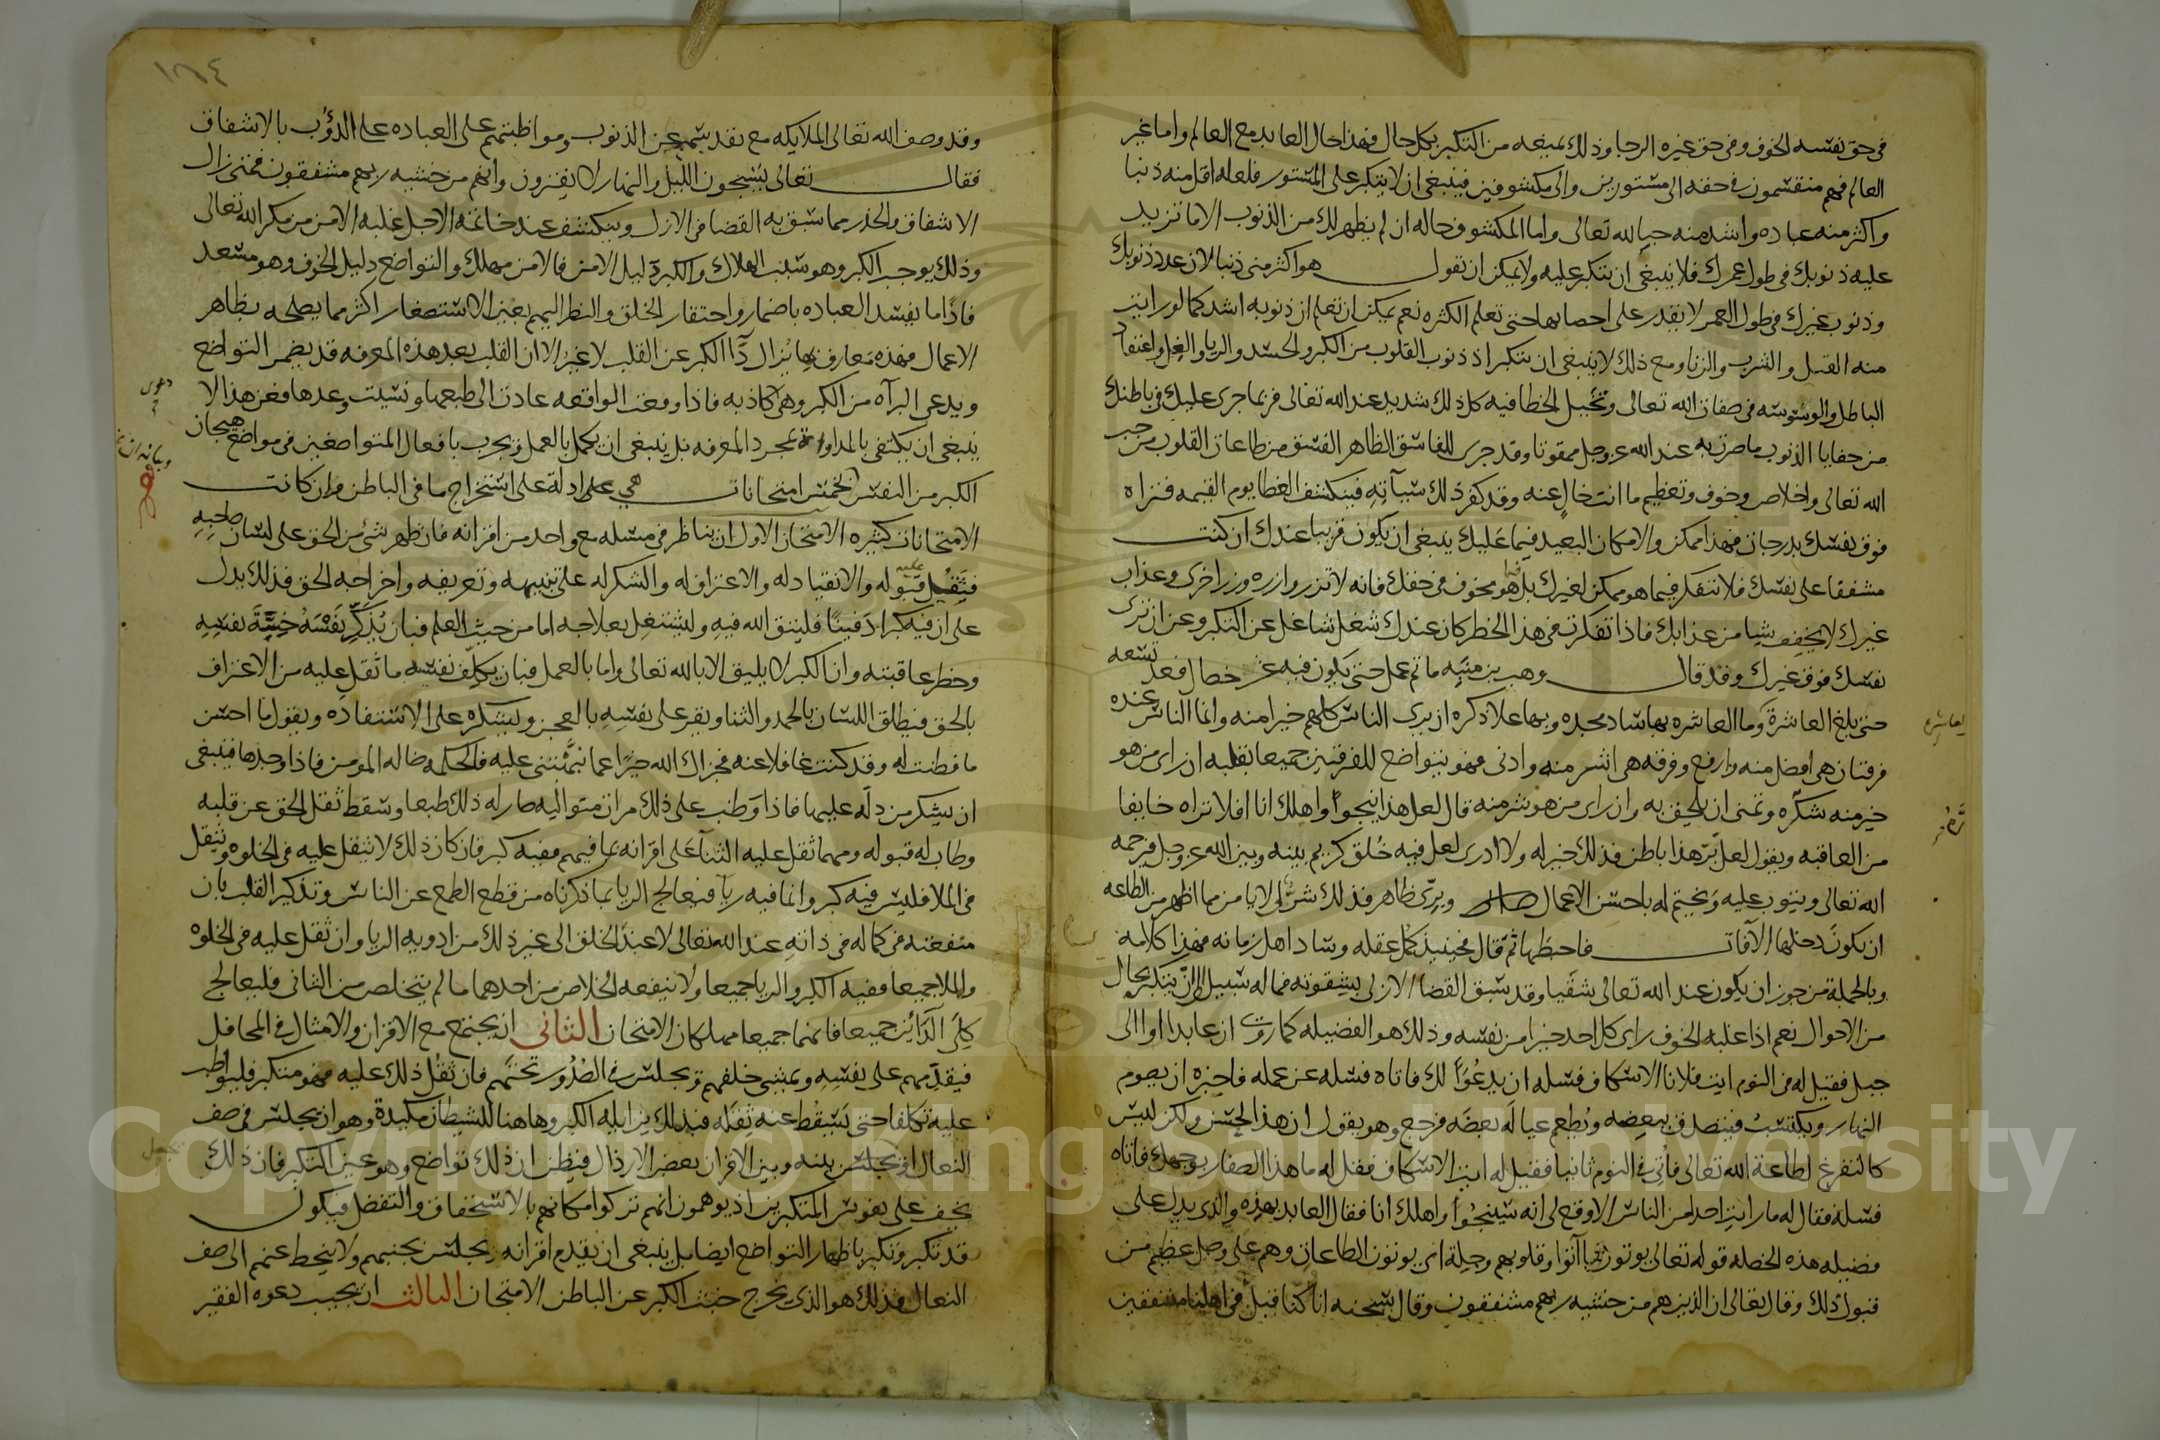 في حق نفسه الخوف وفي حق غيره الرجا وذلك يمنعه من التكبر بكل حال فهذا حال العابد مع العالم واما غير
العالم فهم منقسمون في حقه الى مستورين والى مكشوفين فينبغي ان لا يتكبر على المستور فلعله اقل منه ذنبا
واكثر منه عباده واشد منه حبا لله تعالى واما المكشوف حاله ان لم يظهر لك من الذنوب الا ما تزيد
عليه ذنوبك في طول عمرك فلا ينبغي ان تتكبر عليه ولا يمكن ان تقول هو اكثر مني ذنبا لان عدد ذنوبك
وذنوب غيرك في طول العمر لا تقدر على احصايها حتى تعلم الكثره نعم يمكن ان تعلم ان ذنوبه اشد كما لو رايت
منه القتل والشرب والزنا ومع ذلك لا ينبغي ان تتكبر اذ ذنوب القلوب من الكبر والحسد والريا والغل واعتقاد
الباطل والوسوسه في صفات الله تعالى وتخيل الخطا فيه كل ذلك شديد عند الله تعالى فربما جرى عليك في باطنك
من خفايا الذنوب ما صرت به عند الله عز وجل ممقوتا وقد جرى للفاسق الظاهر الفسق من طاعات القلوب من حب
الله تعالى واخلاص وخوف وتعظيم ما انت خال عنه وقد كفر ذلك سيآته فينكشف الغطا يوم القيمه فتراه
فوق نفسك بدرجات فهذا ممكن والامكان البعيد فيما عليك ينبغي ان يكون قريبا عندك ان كنت
مشفقا على نفسك فلا تتفكر فيما هو ممكن لغيرك بل فيما هو مخوف في حقك فانه لا تزر وازره وزر اخرى وعذاب
غيرك لا يخفف شيا من عذابك فاذا تفكرت في هذا الخطر كان عندك شغل شاغل عن التكبر وعن ان ترى
نفسك فوق غيرك وقد قال وهب بن منبه ما تم عمل حتى يكون فيه عشر خصال فعد تسعه
حتى بلغ العاشرة وما العاشره بها ساد مجده وبها علا ذكره ان يرى الناس كلهم خيرا منه وانما الناس عنده
فرقتان هي افضل منه وارفع وفرقه هي اشر منه وادنى فهو يتواضع للفرقتين جميعا بقلبه ان راى من هو
خير منه شكره وتمنى ان يلحق به وان راى من هو شر منه قال لعل هذا ينجوا واهلك انا افلا تراه خايفا
من العاقبه ويقول لعل بر هذا باطن فذلك خير له ولا ادري لعل فيه خلق كريم بينه وبين الله عز وجل فيرحمه
الله تعالى ويتوب عليه ويختم له باحسن الاعمال وبري ظاهر فذلك شر لي لا يامن مما اظهر من الطاعه
ان يكون دخلها الآفات فاحبطها ثم قال فحينيذ كمل عقله وساد اهل زمانه فهذا كلامه
وبالجملة من جوز ان يكون عند الله تعالى شقيا وقد سبق القضا الازلي بشقوته فما له سبيل الى ان يتكبر بحال
من الاحوال نعم اذا غلبه الخوف راى كل احد خيرا من نفسه وذلك هو الفضيله كما روي ان عابدا اوا الى
جبل فقيل له في النوم ايت فلانا الاسكاف فسله ان يدعوا لك فاتاه فسله عن عمله فاخبره انه يصوم
النهار ويكتسب فيتصدق ببعضه ويطعم عياله بعضه فرجع وهو يقول ان هذا الحسن ولكن ليس
كالتفرغ لطاعة الله تعالى فاتي في النوم ثانيا فقيل له ايت الاسكاف فقل له ما هذا الصفار بوجهك فاتاه
فسله فقال له ما رايت احدا من الناس الا وقع لي انه سينجوا واهلك انا فقال العابد بهذه والذي يدل على
فضيله هذه الخصله قوله تعالى يوتون ما آتوا وقلوبهم وجلة اي يوتون الطاعات وهم على وجل عظيم من
قبول ذلك وقال تعالى ان الذين هم من خشيه ربهم مشفقون وقال سبحنه انا كنا قبل في اهلنا مشفقين
العاشره
١٦٤
وقد وصف الله تعالى الملايكه مع تقدسهم عن الذنوب ومواظبتهم على العباده على الدؤب بالاشفاق
فقال تعالى يسبحون الليل والنهار لا يفترون وانهم من خشيه ربهم مشفقون فمتى زال
الاشفاق والحذر مما سبق به القضا في الازل وينكشف عند خاتمه الاجل غلبه الامن من مكر الله تعالى
وذلك يوجب الكبر وهو سبب الهلاك والكبر دليل الامن فالامن مهلك والتواضع دليل الخوف وهو مسعد
فاذا ما يفسد العباده باضمار واحتقار الخلق والنظر اليهم بعين الاستصغار اكثر مما يصلحه بظاهر
الاعمال فهذه معارف بها يزال دآ الكبر عن القلب لا غير الا ان القلب بعد هذه المعرفه قد يضمر التواضع
ويدعى البرآه من الكبر وهي كاذبه فاذا وقعت الواقعه عادت الى طبعها ونسيت وعدها فعن هذا لا
ينبغي ان يكتفى بالمداواه بمجرد المعرفه بل ينبغي ان يكمل بالعمل ويجرب بافعال المتواضعين في مواضع هيجان
الكبر من النفس لخمس امتحانات هي على ادلة على استخراج ما في الباطن وان كانت
الامتحانات كثيره الامتحان الاول ان يناظر في مسله مع واحد من اقرانه فان ظهر شي من الحق على لسان صاحبه
فثقل عليه قبوله والانقياد له والاعتراف له والشكر له على تنبيهه وتعريفه واخراجه الحق فذلك يدل
على ان فيه كبرا دفينا فليتق الله فيه وليشتغل بعلاجه اما من حيث العلم فبان يذكر نفسه خسة نفسه
وخطر عاقبته وان الكبر لا يليق الا بالله تعالى واما بالعمل فبان يكلف نفسه ما ثقل عليه من الاعتراف
بالحق فيطلق اللسان بالحمد والثنا ويقر على نفسه بالعجز ويشكره على الاستفاده ويقول ما احسن
ما فطنت له وقد كنت غافلا عنه فجزاك الله خيرا عما نبهتني عليه فالحكمه ضاله المومن فاذا وجدها فينبغي
ان يشكر من دله عليها فاذا وظب على ذلك مرات متواليه صار له ذلك طبعا وسقط ثقل الحق عن قلبه
وطاب له قبوله ومهما ثقل عليه الثنا على اقرانه بما فيهم ففيه كبر فان كان ذلك لا يثقل عليه في الخلوه ويثقل
في الملا فليس فيه كبر وانما فيه ريآ فيعالج الريا بما ذكرناه من قطع الطمع عن الناس وتذكير القلب بان
منفعته في كماله في ذاته عند الله تعالى لا عند الخلق الى غير ذلك من ادويه الريا وان ثقل عليه في الخلوه
والملا جميعا ففيه الكبر والريا جميعا ولا ينفعه الخلاص من احدهما ما لم يتخلص من الثاني فليعالج
كلى الدائين جميعا فانهما جميعا مهلكان الامتحان الثاني ان يجتمع مع الاقران والامثال في المحافل
فيقدمهم على نفسه ويمشي خلفهم ويجلس في الصدور تحتهم فان ثقل ذلك عليه فهو متكبر فليواظب
عليه تكلفا حتى يسقط عنه ثقله فبذلك يزايله الكبر وهاهنا للشيطان مكيدة وهو ان يجلس في صف
النعال او يجلس بينه وبين الاقران بعض الارذال فيظن ان ذلك تواضع وهو عين التكبر فان ذلك
يخف على نفوس المتكبرين اذ يوهمون انهم تركوا مكانهم بالاستحقاق والتفضل فيكون
قد تكبر وتكبر باظهار التواضع ايضا بل ينبغي ان يقدم اقرانه ويجلس بجنبهم ولا ينحط عنهم الى صف
النعال فذلك هو الذي يخرج خبث الكبر عن الباطن الامتحان الثالث ان يجيب دعوه الفقير
Copyright © King Saud University